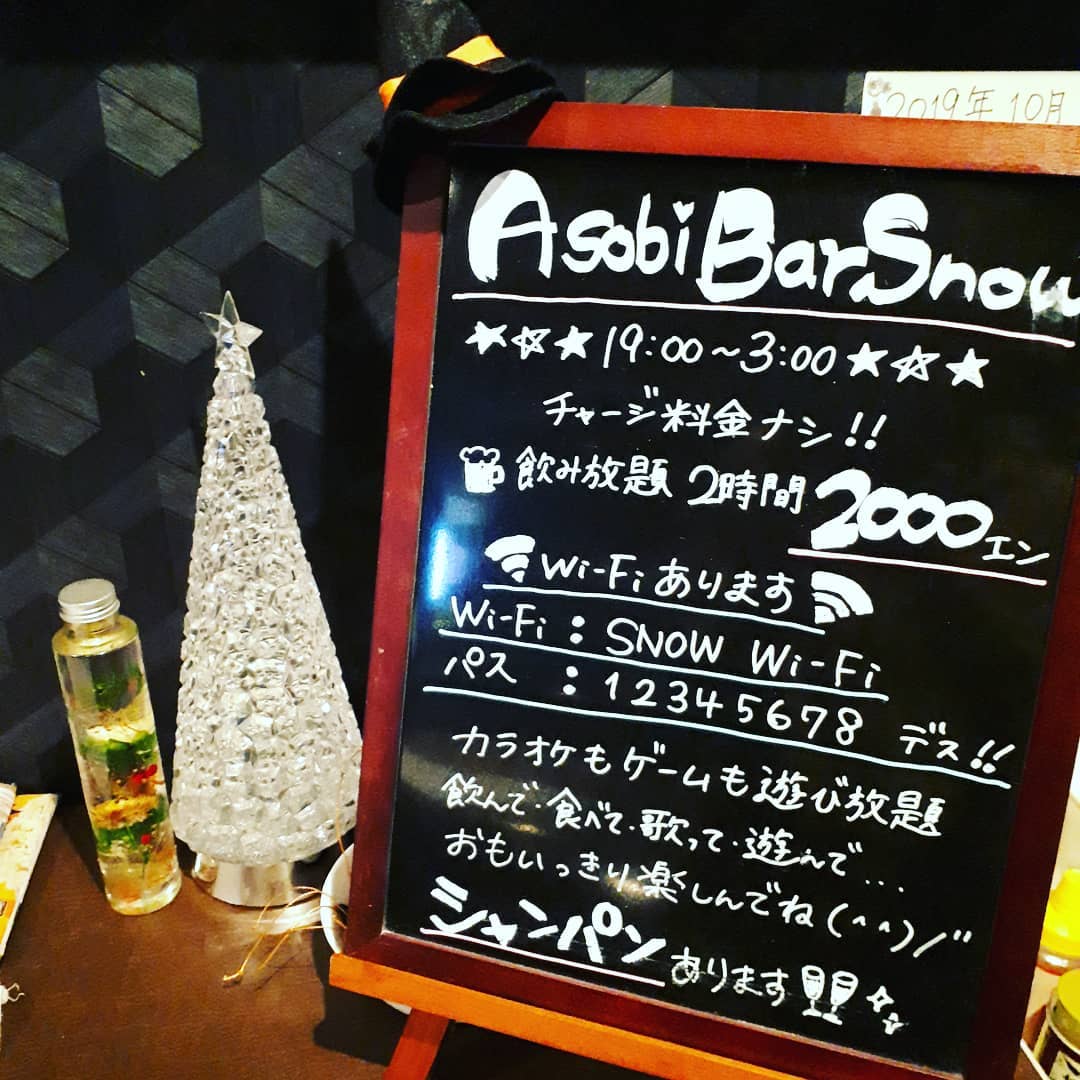 2019年 10月
Asobi Bar Snow
★☆★ 19:00~3:00 ★☆★
チャージ料金ナシ!!
飲み放題 2時間 2000エン
Wi-Fi あります
Wi-Fi : SNOW Wi-Fi
パス : 12345678 デス!!
カラオケもゲームも遊び放題
飲んで・食べて・歌って・遊んで...
おもいっきり楽しんでね(^^)/゛
シャンパン あります